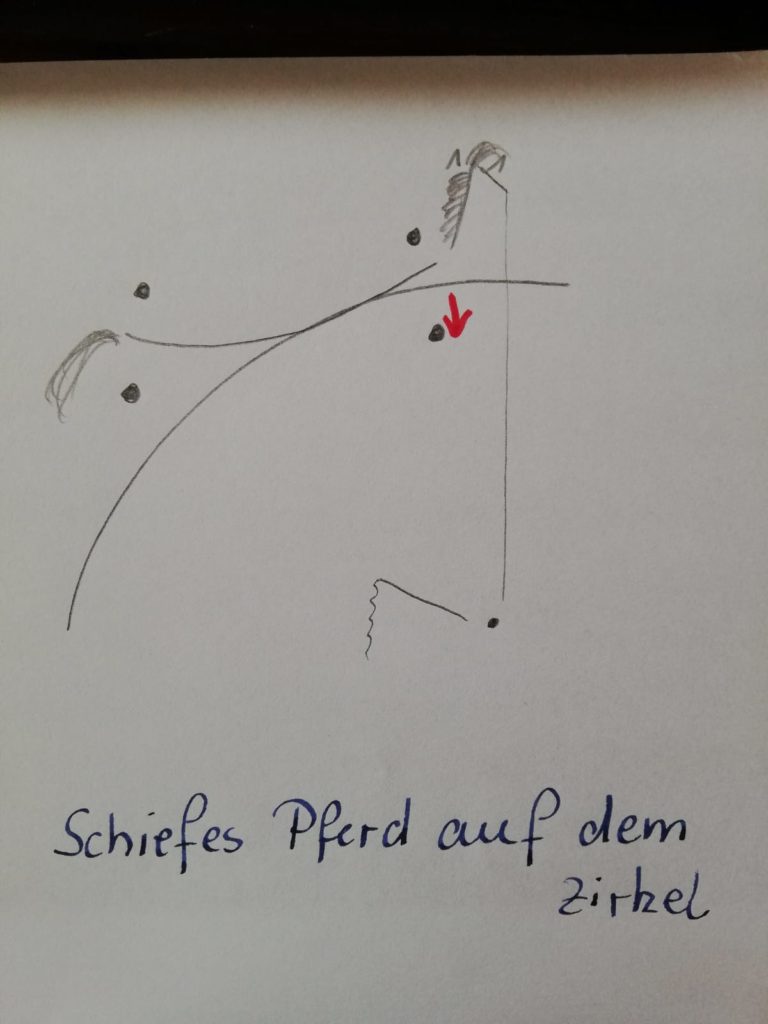 Schiefes Pferd auf dem
Zirkel